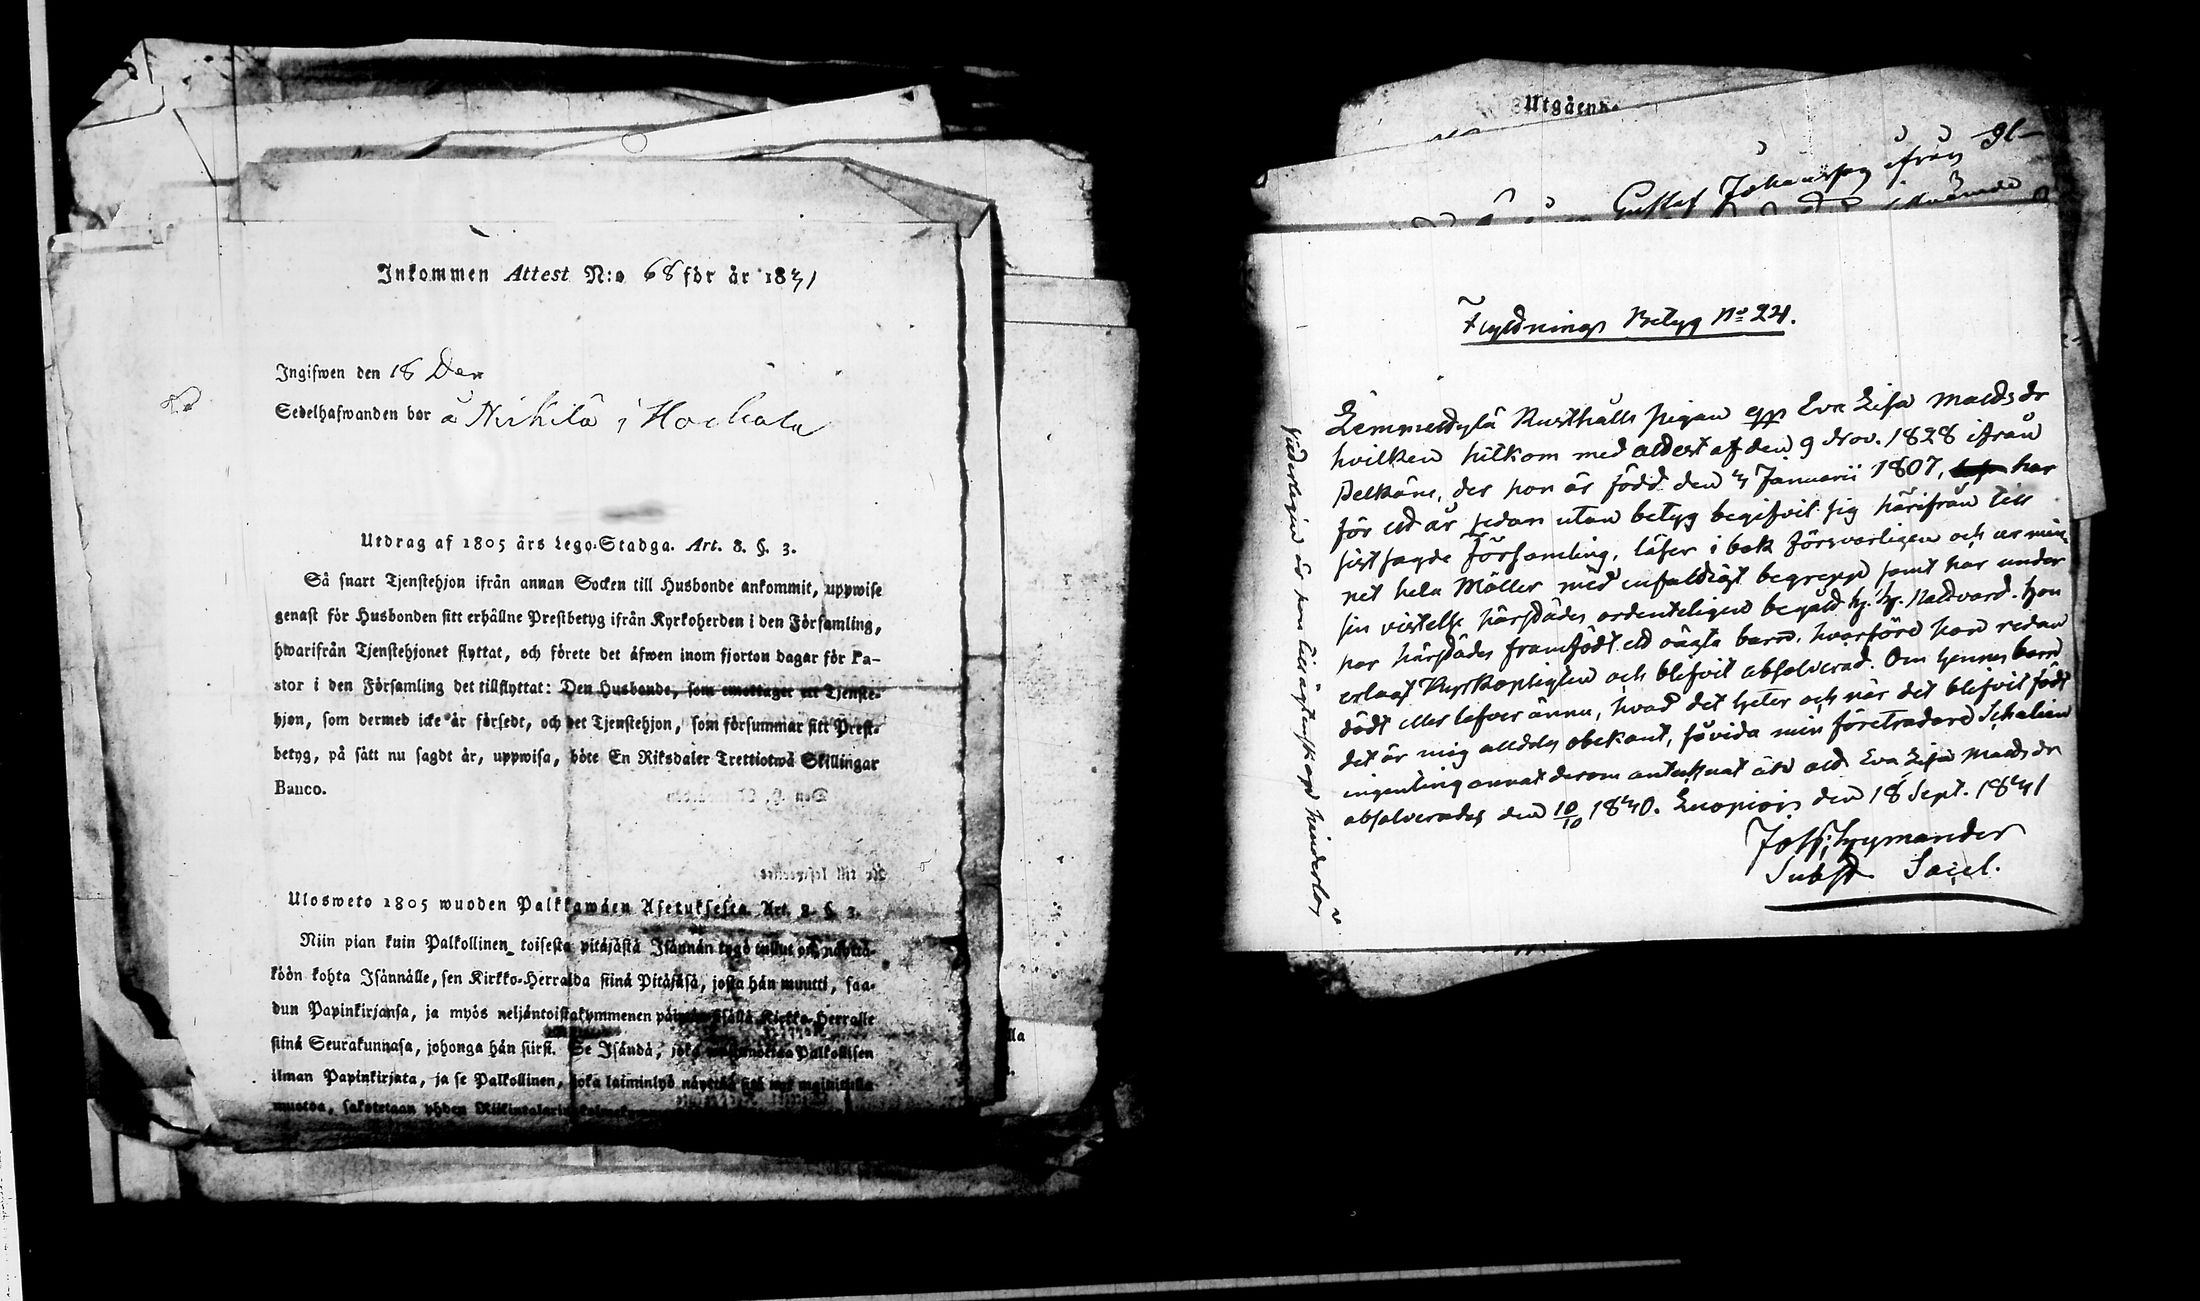 Inkommen Attest N:o 68 för år 1841
Ingifwen den 18 Dec
Sedelhafwanden bor å Nihkilä i
Utdrag af 1805 års Lego-Stadga. Art. 8. §. 3.
Så snart Tjenstehjon ifrån annan Socken till Husbonde ankommit, uppwise
genast för Husbonden sitt erhållne Prestbetyg ifrån Kyrkoherden i den Församling,
hwarifrån Tjenstehjonet flyttat, och förete det äfwen inom fjorton dagar för Pa-
stor i den Församling det tillflyttat: Den Husbonde, som emottager ett Tjenste-
hjon, som dermed icke är försedt, och det Tjenstehjon, som försummar sitt Prest-
betyg, på sätt nu sagdt är, uppwisa, böte En Riksdaler Trettiotwå Skillingar
Banco.
Ulosweto 1805 wuoden Palkkawäen Asetuksesta. Art. 8. §. 3.
Niin pian kuin Palkollinen toisesta pitäjästä Isännän tygö tullut on, näyttä-
köön kohta Isännälle, sen Kirkko-Herralda siinä Pitäjäsä, josta hän muutti, saa-
dun Papinkirjansa, ja myös neljäntoistakymmenen päiwän sisällä Kirkko-Herralle
siinä Seurakunnasa, johonga hän siirsi. Se Isändä, joka Palkollisen
ilman Papinkirjata, ja se Palkollinen, joka laiminlyö näyttää sitä nyt mainitulla
muotoa, sakotetaan yhden
Utgående
Gustaf Johansson ifrån
Flyttnings Betyg No 24.
Rusthålls pigan Eva Lisa Matts dr
hvilken hitkom med attest af den 9 Nov. 1828 ifrån
Pelkäne, der hon är född den 4 Januarii 1807, har
för ett år sedan utan betyg begifvit sig härifrån till
sistsagde Församling, läser i bok försvarligen och av min-
net hela Möller med enfaldigt begrepp samt har under
sin vistelse härstädes ordenteligen begått h. h. Nattvard. Hon
har härstädes framfödt ett oägta barn, hvarföre hon redan
erlagt Kyrkoplighten och blifvit absolverad. Om hennes barn
dödt eller lefver ännu, hvad det heter och när det blifvit födt
det är mig alldeles obekant, såvida min företrädare
ingenting annat derom antecknat än att Eva Lisa Matts dr
absolverades den 10/10 1840. Kuopiois den 18 Sept. 1841
Joh. Hymander
Subst Sacel.
Vidarligen är hon till ägtenskap hinderlös